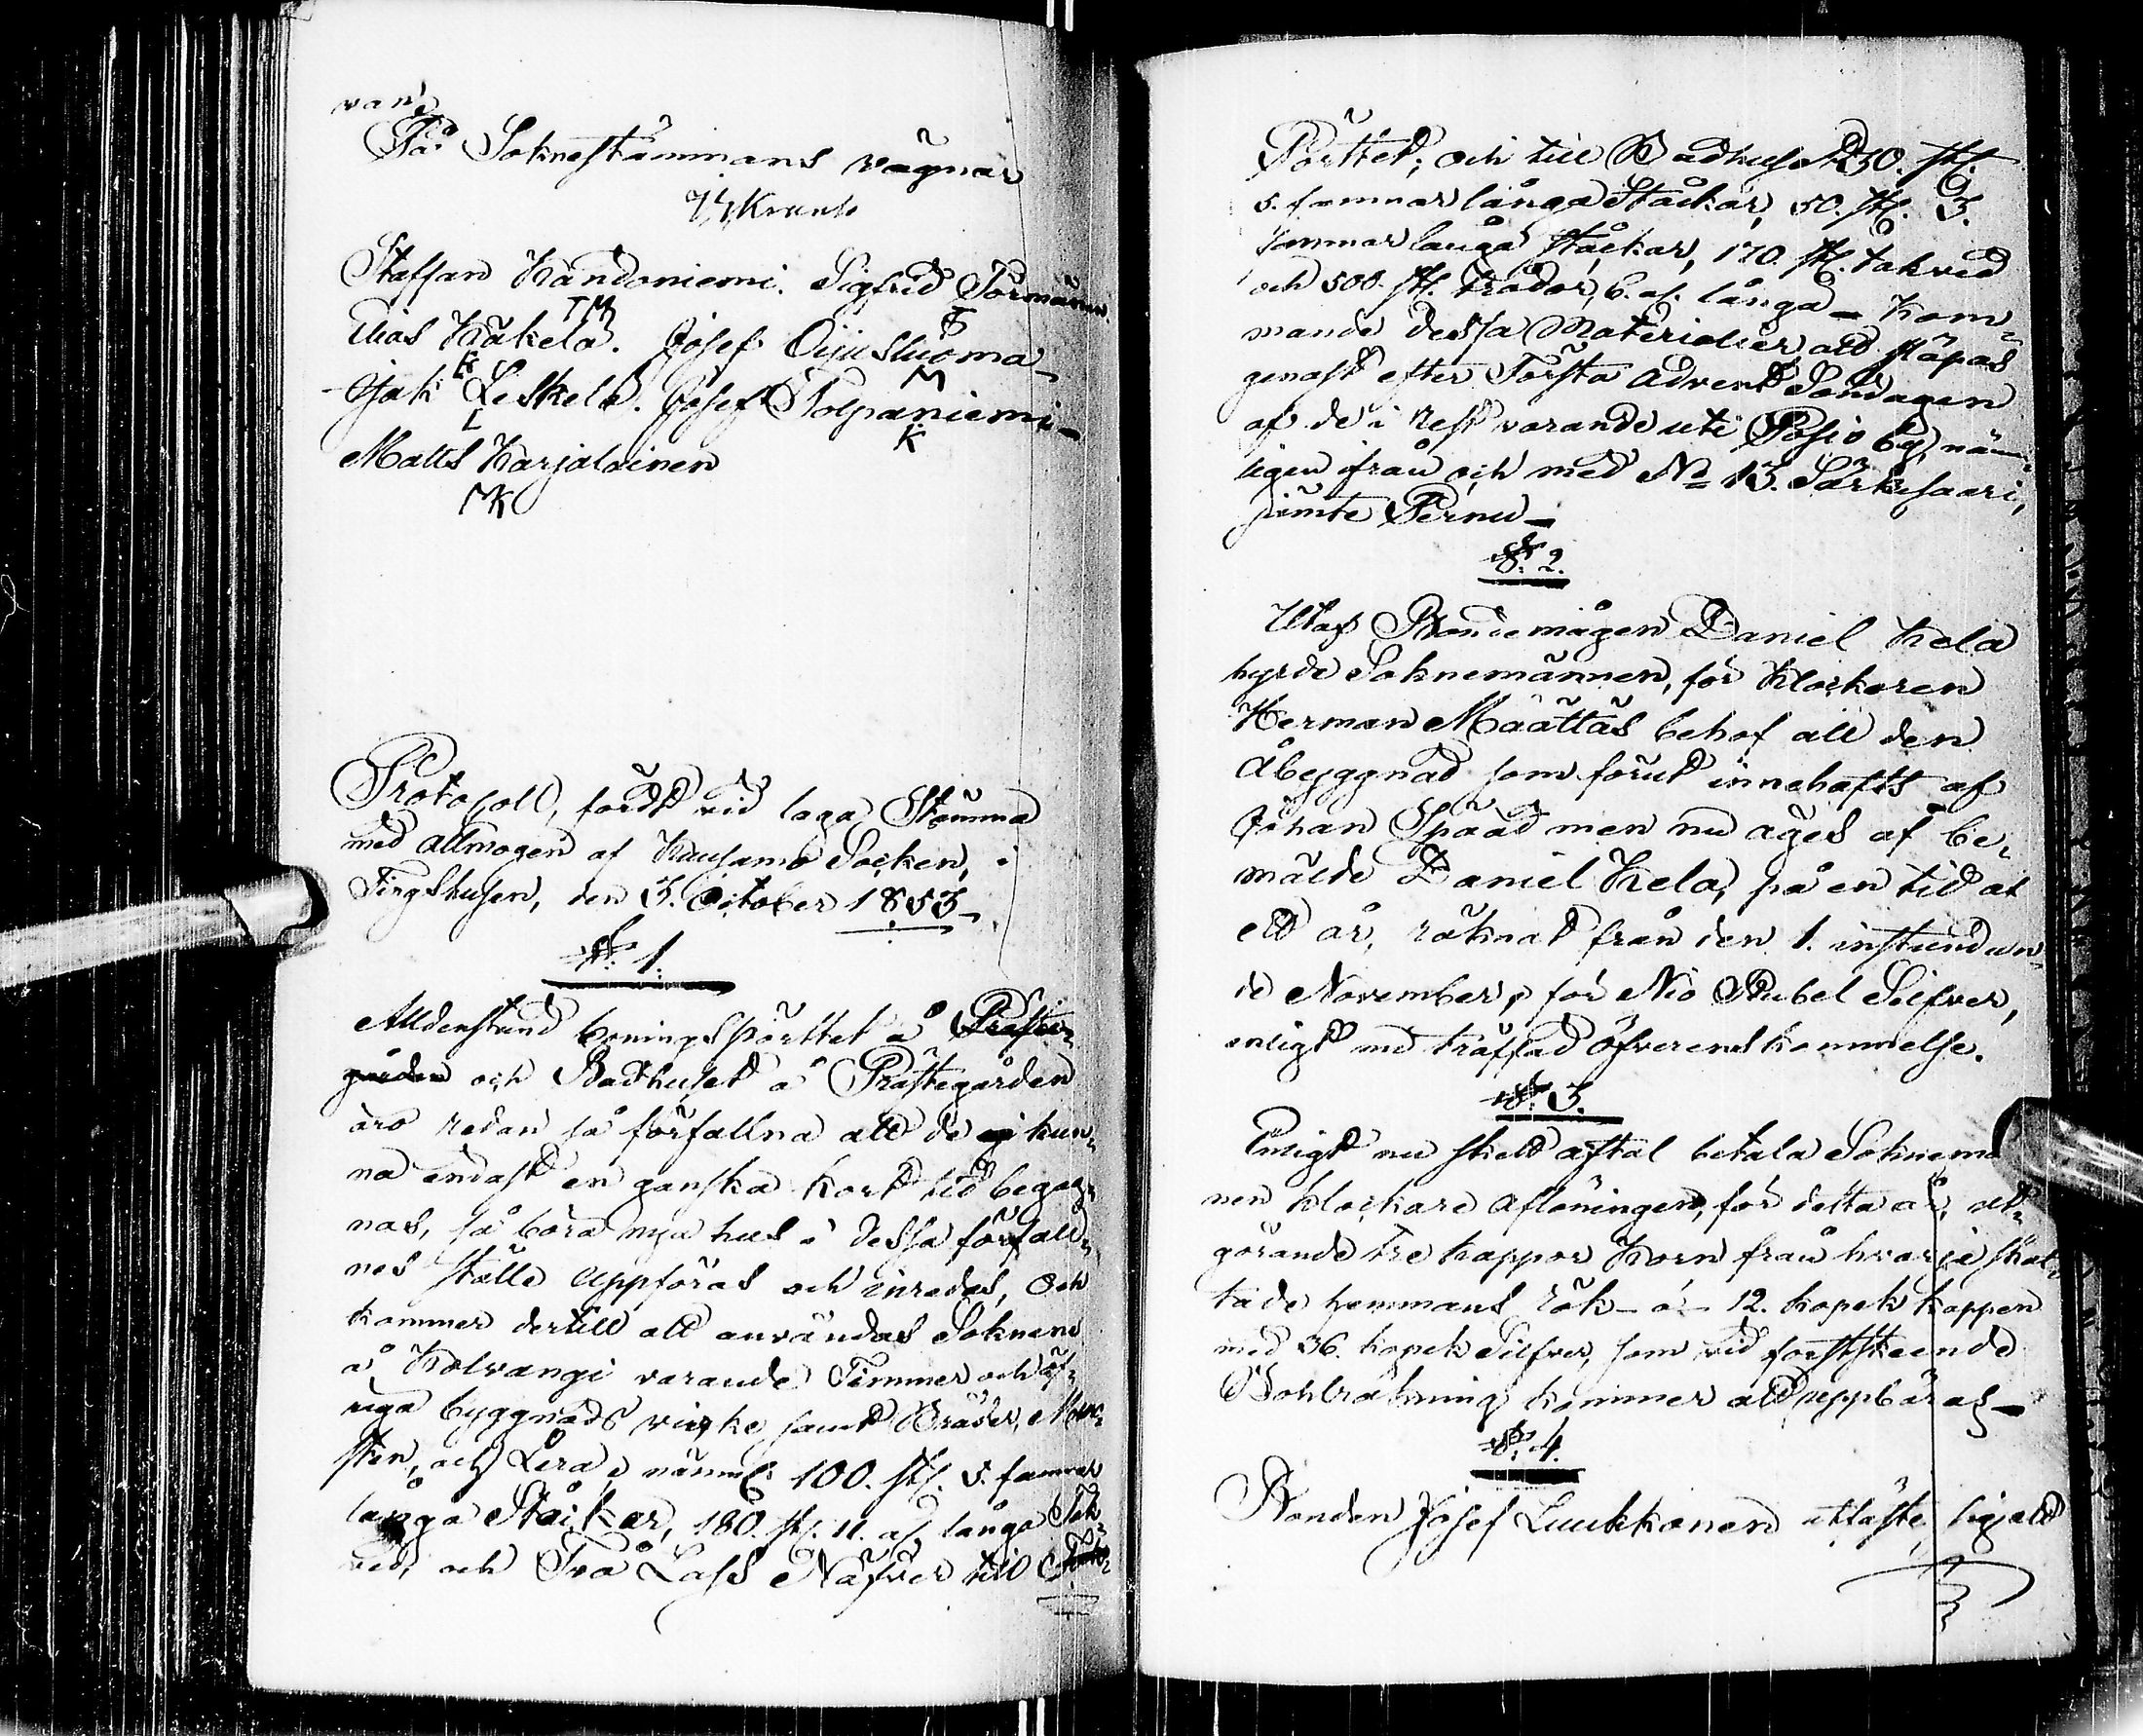 På Soknestämmans vägnar
Staffan Kandoniemi. Sigfrid Törmänen.
Elias Käkelä. Josef Oijusluoma
K
M
Jak Leskelä. Josef Tolpaniemi
L
K
Matts Karjalainen
MK
Protocoll, fördt vid laga Stämma
med allmogen af Kuusamo Socken, i
Tingshusen, den 3. October 1853
§. 1.
Alldenstund boningspörttet å Präste
gården och Badhuset å Prästegården
äro redan så förfallna att de ej kun-
na endast en ganska kort tid begag-
nas, så böra nya hus i dessa förfall-
nes ställe uppföras och inredas, och
kommer dertill att användas Soknens
å Kolvangi varande Timmer och öf-
riga byggnads virke samt Bräder, Mur
sten, och Lera, nämnl. 100. st. 5. famnar
långa Stockar, 180. st. 11. al. långa Tak
ved, och Två Lass Näfver till
Pörttet; och till Badhuset 30. st.
5. famnar långa Ståckar, 50. st. 3.
famnar långa ståckar, 170. st. takved
och 500. st. Trådor, 6. al. långa – kom-
mande dessa Materialier att släpas
genast efter Första Advent Söndagen
af de i rest varande uti Posio by, näm-
ligen ifrån och med No 13. Särkisaari,
jämte Pernu
§. 2.
Utaf Bondemågen Daniel Kela
hyrde Soknemännen, för Klockaren
Herman Määttäs behof all den
Åbyggnad som förut innehafts af
Johan Spååd men nu äges af be-
mälde Daniel Kela, på en tid af
ett år, räknat från den 1. instundan-
de November, för Nio Rubel Silfver,
enligt nu träffad öfverenskommelse.
§. 3.
Enligt nu skedt aftal betala Soknemä
nen Klockare aflöningen, för detta år, ut-
görande tre kappor Korn från hvarje skat-
tade hemmans rök – á – 12. kopek kappen
med 36. kopek Silfver, som vid förstskeende
Bohlräkning kommer att uppbäras
§. 4.
Bonden Josef Luukkonen utfäste sig att